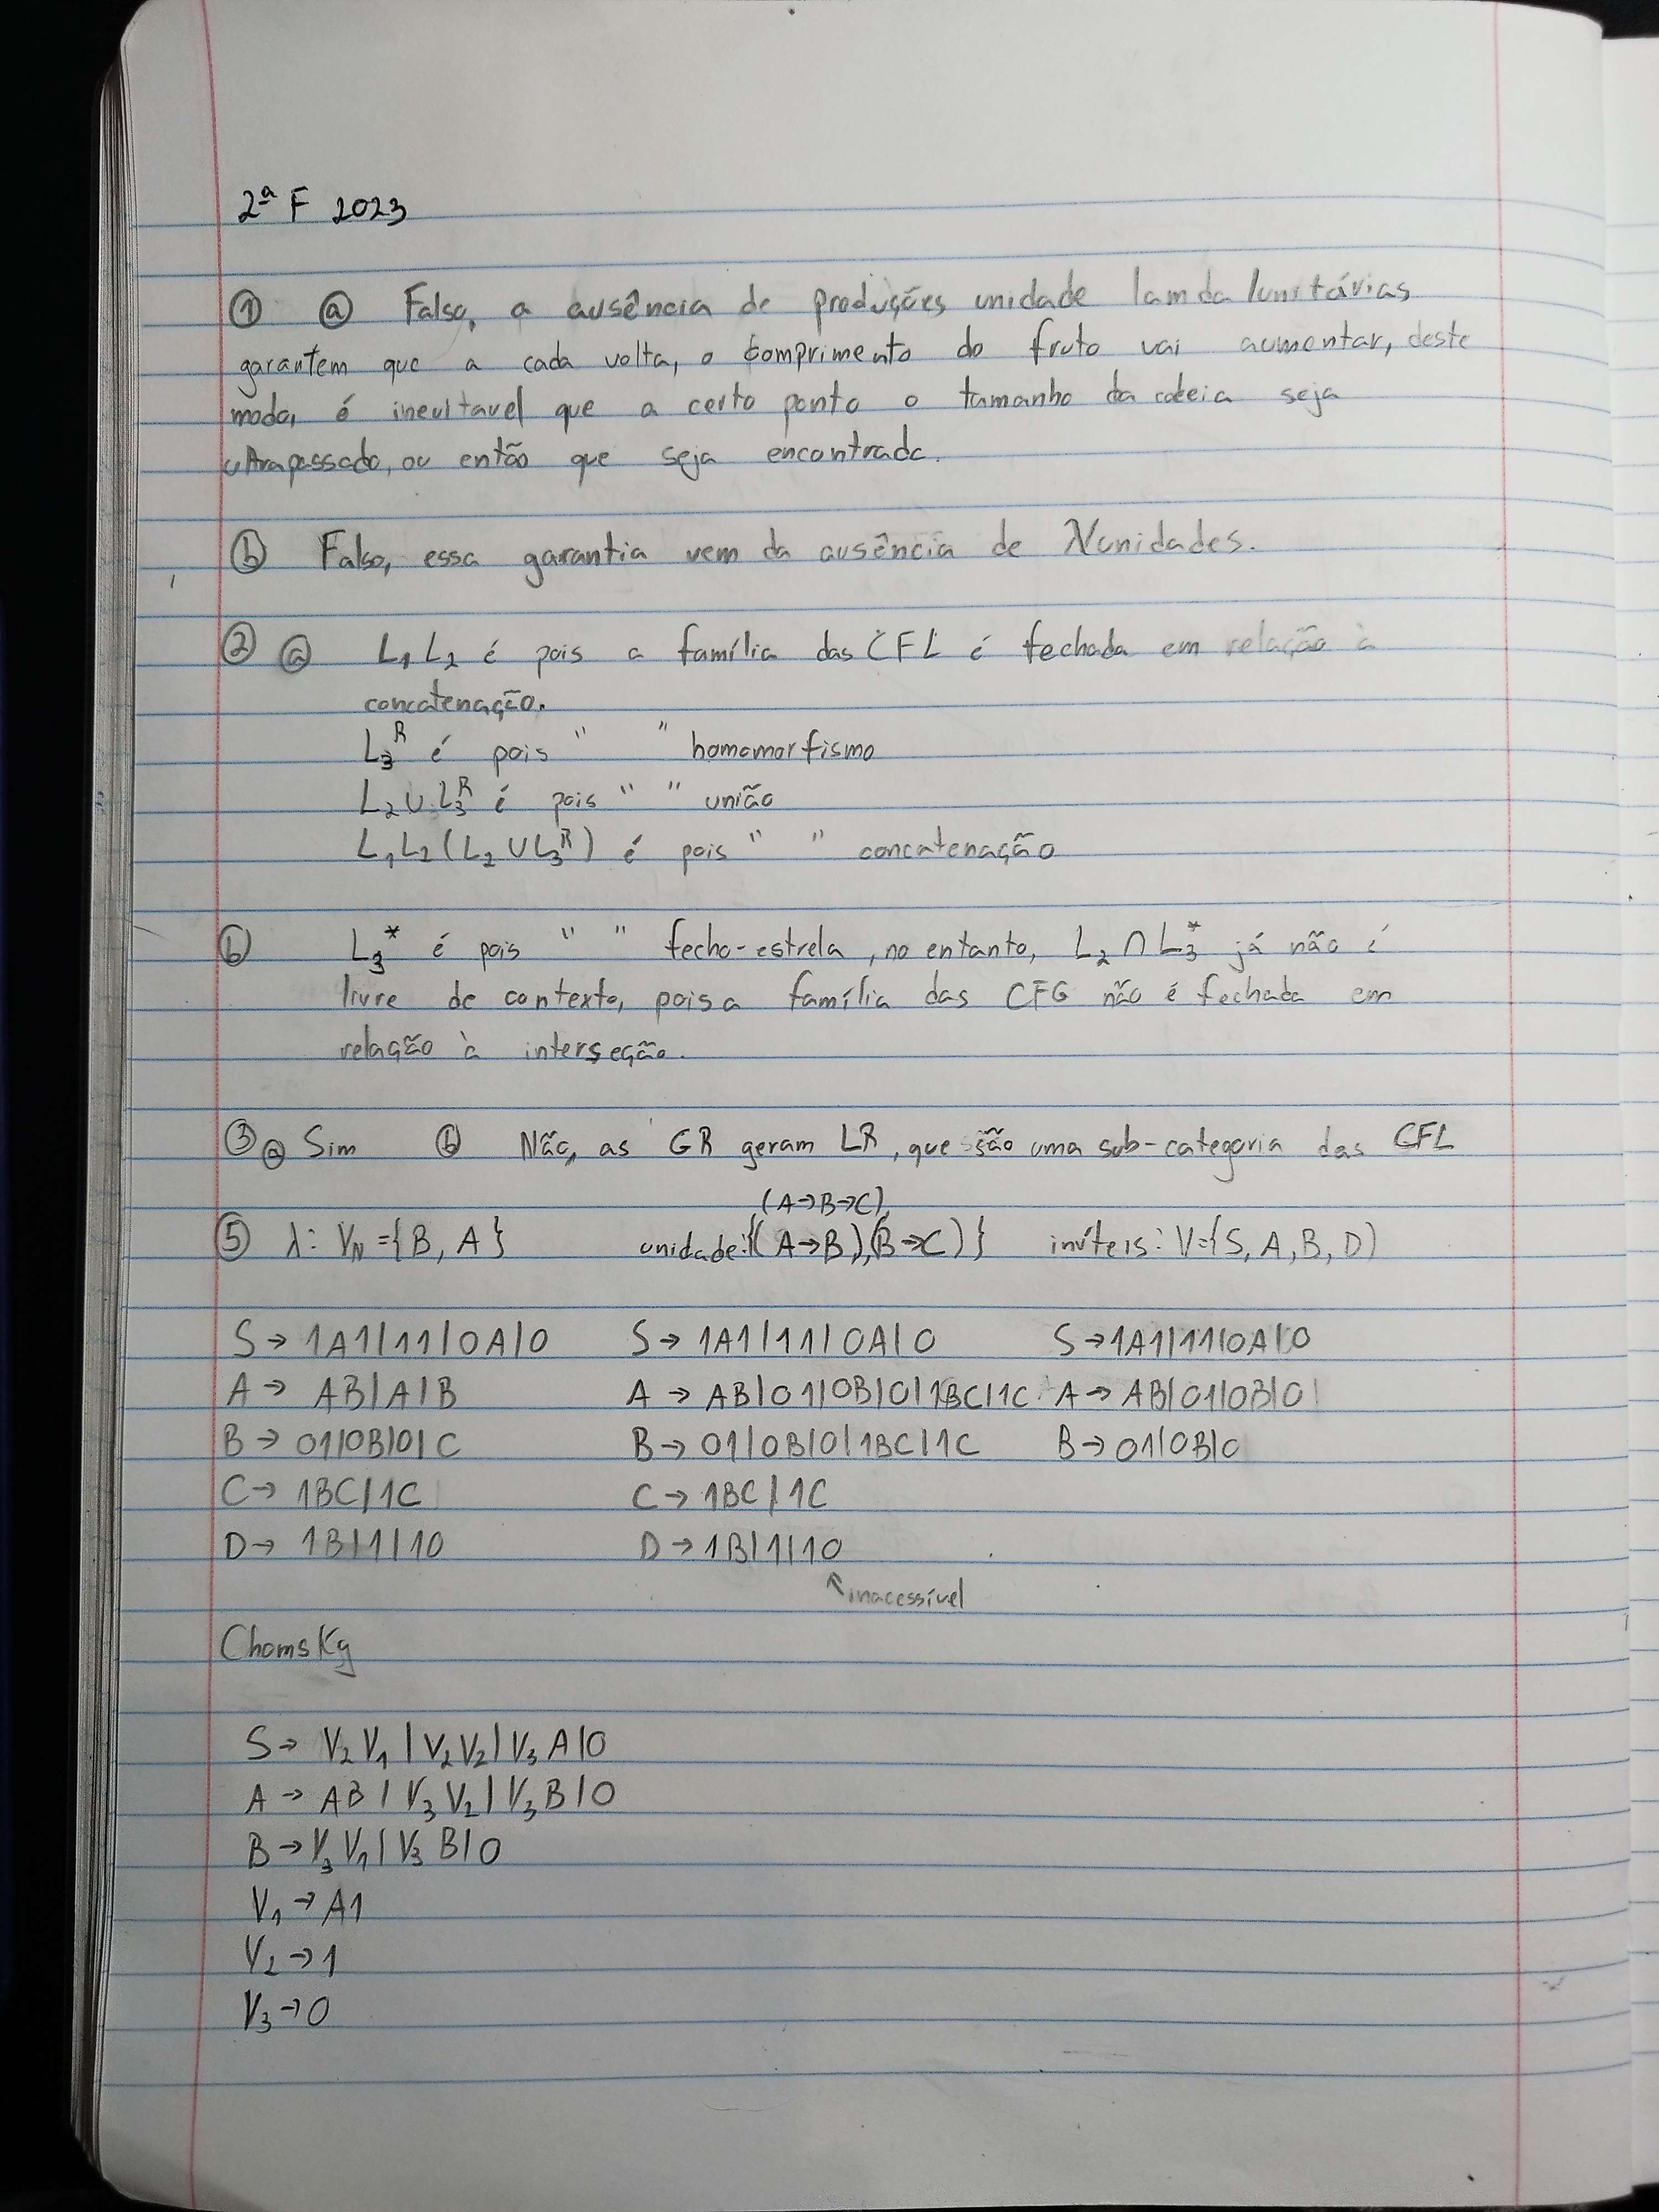 2ª F 2023
① ⓐ Falso, a ausência de produções unidade lamda/unitárias
garantem que a cada volta, o comprimento do fruto vai aumentar, deste
modo, é inevitavel que a certo ponto o tamanho da cadeia seja
ultrapassado, ou então que seja encontrada.
ⓑ Falso, essa garantia vem da ausência de λ/unidades.
② ⓐ L₁L₂ é pois a família das CFL é fechada em relação à
concatenação.
L₃ᴿ é pois " " homomorfismo
L₂∪L₃ᴿ é pois " " união
L₁L₂(L₂∪L₃ᴿ) é pois " " concatenação
ⓑ L₃* é pois " " fecho-estrela, no entanto, L₂∩L₃* já não é
livre de contexto, pois a família das CFG não é fechada em
relação à interseção.
③ ⓐ Sim ⓑ Não, as GR geram LR, que são uma sub-categoria das CFL
(A→B→C),
⑤ λ: V_N={B, A} unidade:{(A→B),(B→C)} inúteis: V={S, A, B, D)
S→ 1A1|11|0A|0 S→ 1A1|11|0A|0 S→1A1|11|0A|0
A→ AB|A|B A→ AB|01|0B|0|1BC|1C A→ AB|01|0B|0|
B→ 01|0B|0|C B→ 01|0B|0|1BC|1C B→01|0B|0
C→ 1BC|1C C→ 1BC|1C
D→ 1B|1|10 D→1B|1|10
↖inacessível
Chomsky
S→ V₂V₁|V₂V₂|V₃A|0
A→ AB|V₃V₂|V₃B|0
B→V₃V₁|V₃B|0
V₁→A1
V₂→1
V₃→0